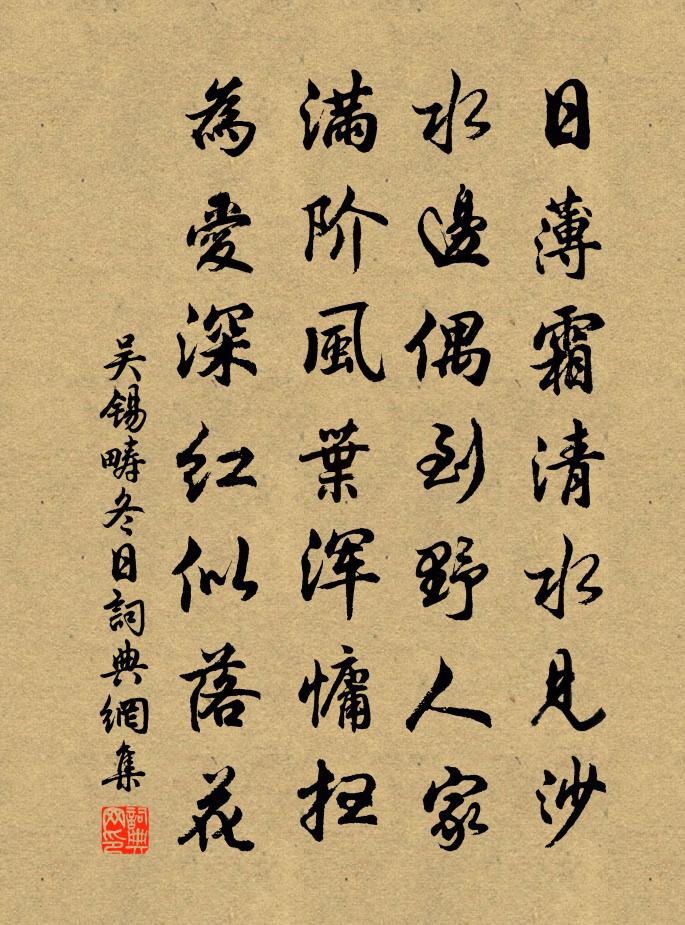 日薄霜清水見沙
水邊偶到野人家
滿阶風葉浑慵扫
為愛深红似落花
吴锡畴冬日詞典網集
詞典網印